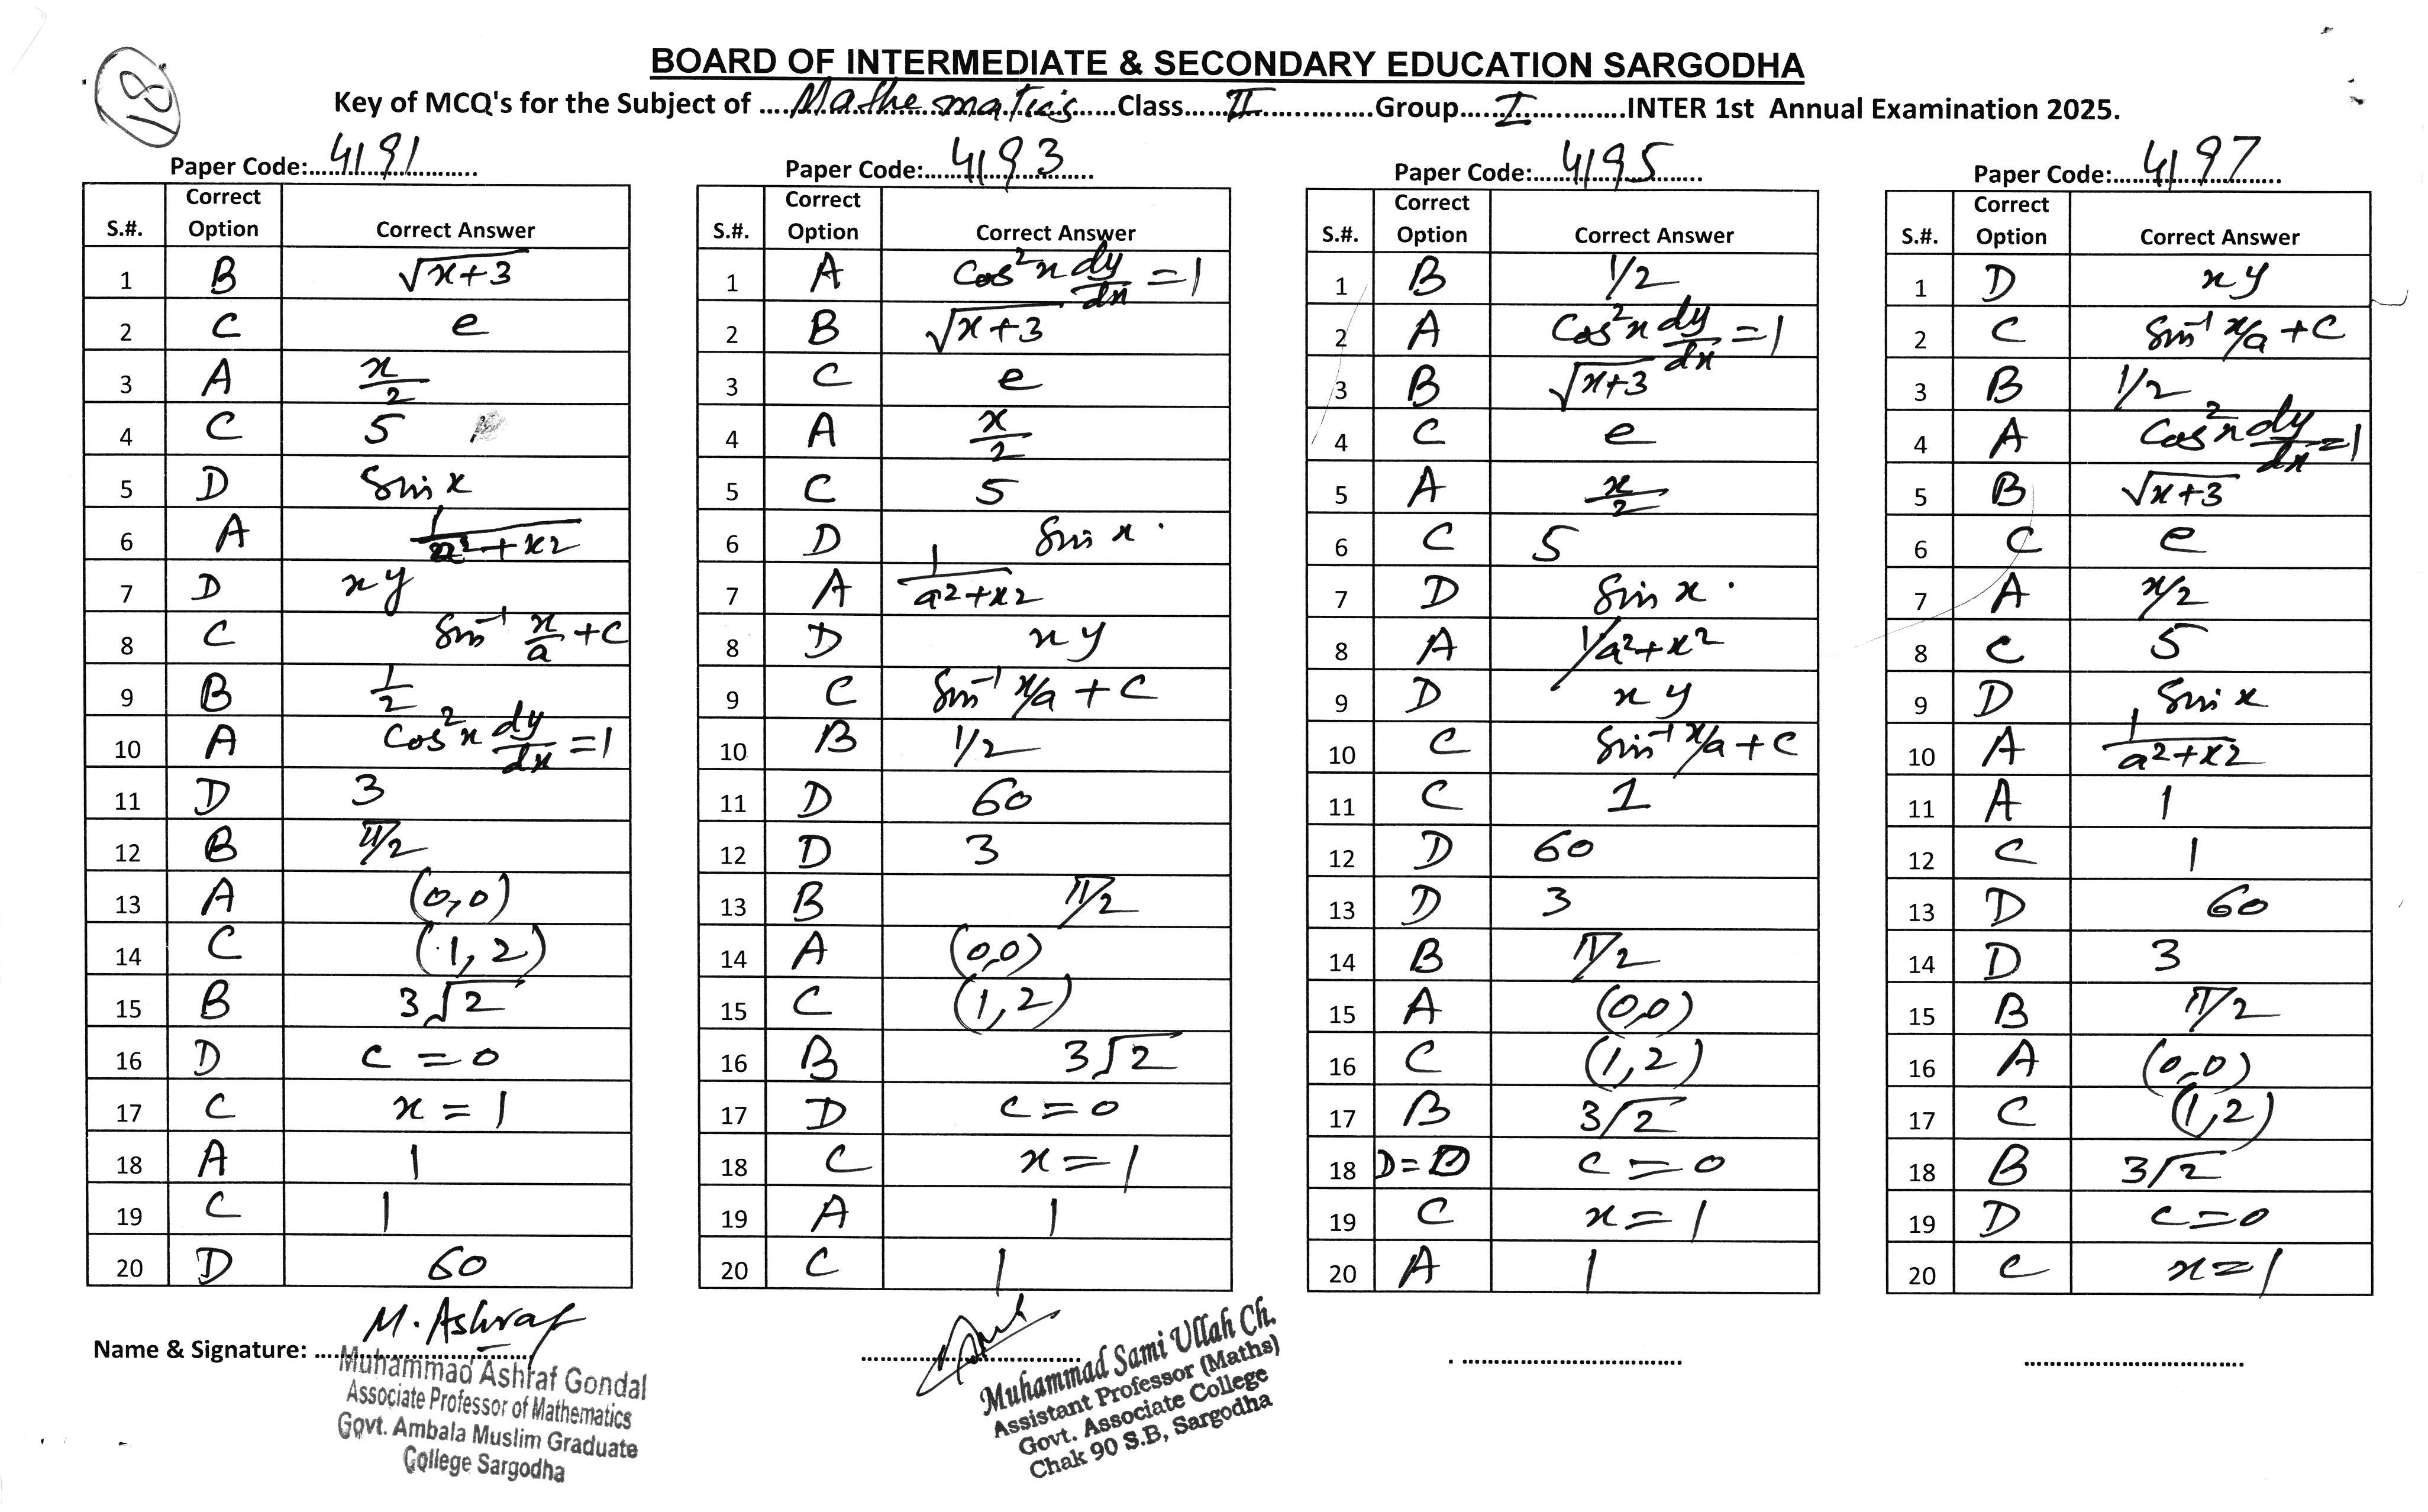 18
BOARD OF INTERMEDIATE & SECONDARY EDUCATION SARGODHA
Key of MCQ's for the Subject of ....Mathematics....Class....II....Group....I....INTER 1st Annual Examination 2025.
Paper Code: 4191
S.#. Correct Option Correct Answer
1 B √x+3
2 C e
3 A x/2
4 C 5
5 D Sin x
6 A 1/a²+x2
7 D xy
8 C Sin⁻¹ x/a + C
9 B 1/2
10 A Cos²x dy/dx = 1
11 D 3
12 B π/2
13 A (0,0)
14 C (1,2)
15 B 3√2
16 D c = 0
17 C x = 1
18 A 1
19 C 1
20 D 60
Paper Code: 4193
S.#. Correct Option Correct Answer
1 A Cos²x dy/dx = 1
2 B √x+3
3 C e
4 A x/2
5 C 5
6 D Sin x
7 A 1/a2+x2
8 D xy
9 C Sin⁻¹ x/a + C
10 B 1/2
11 D 60
12 D 3
13 B π/2
14 A (0,0)
15 C (1,2)
16 B 3√2
17 D c = 0
18 C x = 1
19 A 1
20 C 1
Paper Code: 4195
S.#. Correct Option Correct Answer
1 B 1/2
2 A Cos²x dy/dx = 1
3 B √x+3
4 C e
5 A x/2
6 C 5
7 D Sin x
8 A 1/a²+x²
9 D xy
10 C Sin⁻¹ x/a + C
11 C 1
12 D 60
13 D 3
14 B π/2
15 A (0,0)
16 C (1,2)
17 B 3√2
18 D = D c = 0
19 C x = 1
20 A 1
Paper Code: 4197
S.#. Correct Option Correct Answer
1 D xy
2 C Sin⁻¹ x/a + C
3 B 1/2
4 A Cos²x dy/dx = 1
5 B √x+3
6 C e
7 A x/2
8 C 5
9 D Sin x
10 A 1/a2+x2
11 A 1
12 C 1
13 D 60
14 D 3
15 B π/2
16 A (0,0)
17 C (1,2)
18 B 3√2
19 D c = 0
20 C x = 1
Name & Signature: M. Ashraf
Muhammad Ashraf Gondal
Associate Professor of Mathematics
Govt. Ambala Muslim Graduate
College Sargodha
Muhammad Sami Ullah Ch.
Assistant Professor (Maths)
Govt. Associate College
Chak 90 S.B, Sargodha